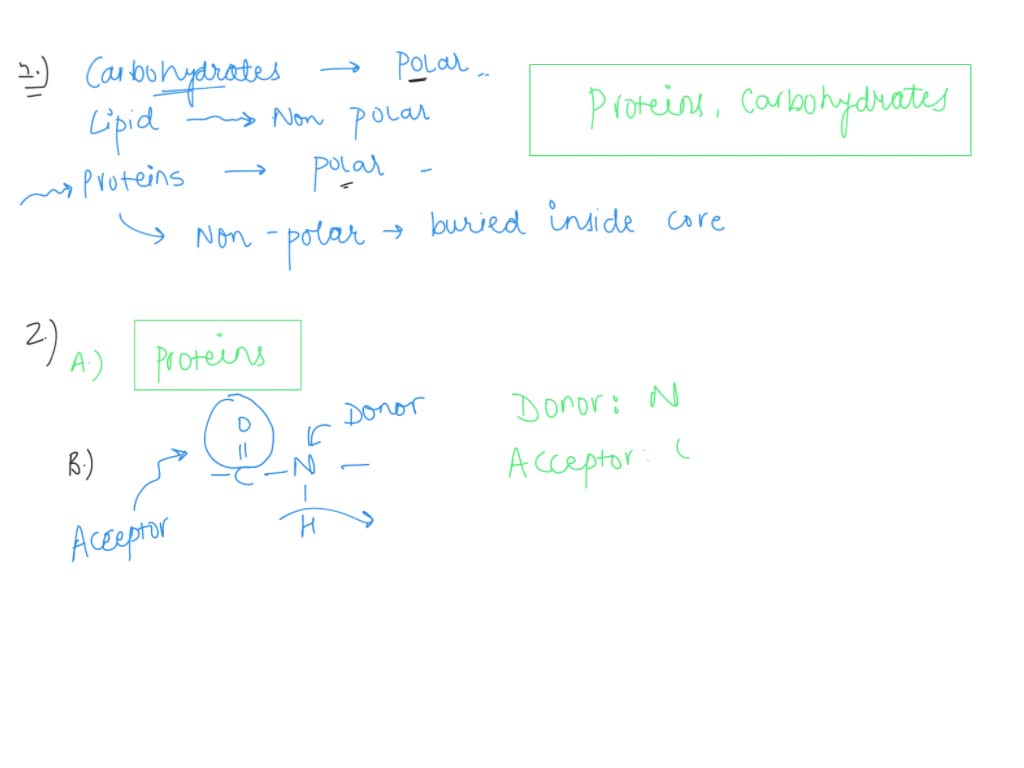 1.) Carbohydrates → Polar
Proteins, Carbohydrates
Lipid → Non polar
→ Proteins → polar -
→ Non-polar → buried inside core
2.)
A.) Proteins
Donor
Donor: N
O
||
B.) -C-N-
Acceptor: (
|
H
Acceptor